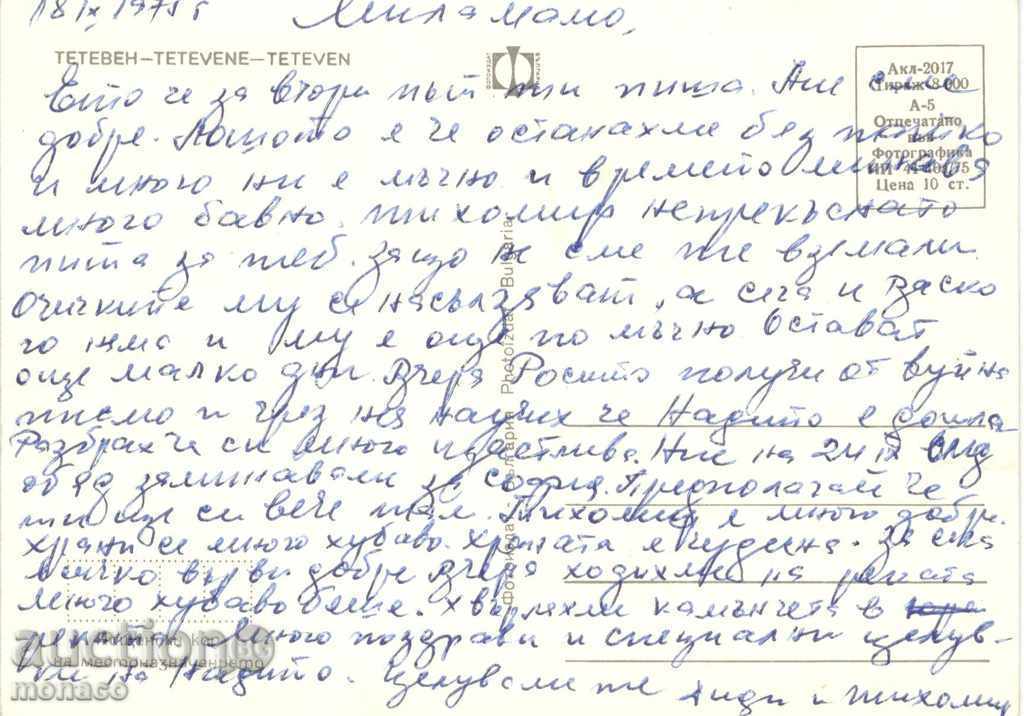 18 IX 1975 г Мила мамо,
ТЕТЕВЕН—TETEVENE—TETEVEN
ФОТОИЗДАТ БЪЛГАРИЯ
Акл-2017
Тираж 8 000
А-5
Отпечатано
във
Фотографика
Цена 10 ст.
Ето че за втори път ти пиша. Ние сме
добре. Лошото е че останахме без
и много ни е мъчно и времето минава
много бавно. Тихомир непрекъснато
пита за теб. защо не сме те взимали
Очичките му се насълзяват, а сега и Васко
го няма и му е още по мъчно Остават
още малко дни. Вчера Росито получи от вуйна
писмо и чрез нея научих че Надито е дошла
Разбрах че си много щастлива. Ние на 24 IX след
обяд заминавали за София. Предполагай че
ти ще си вече там. Тихомир е много добре.
храни се много хубаво. Храната е чудесна. За сега
всичко върви добре вчера ходихме на реката
много хубаво беше. Хвърляхме камънчета в
реката. Много поздрави и специални целув-
ки на Надито. Целували те Анди и Тихомир
Фотоиздат България Photoizdat Bulgaria
на местоназначението
auction BG
monaco